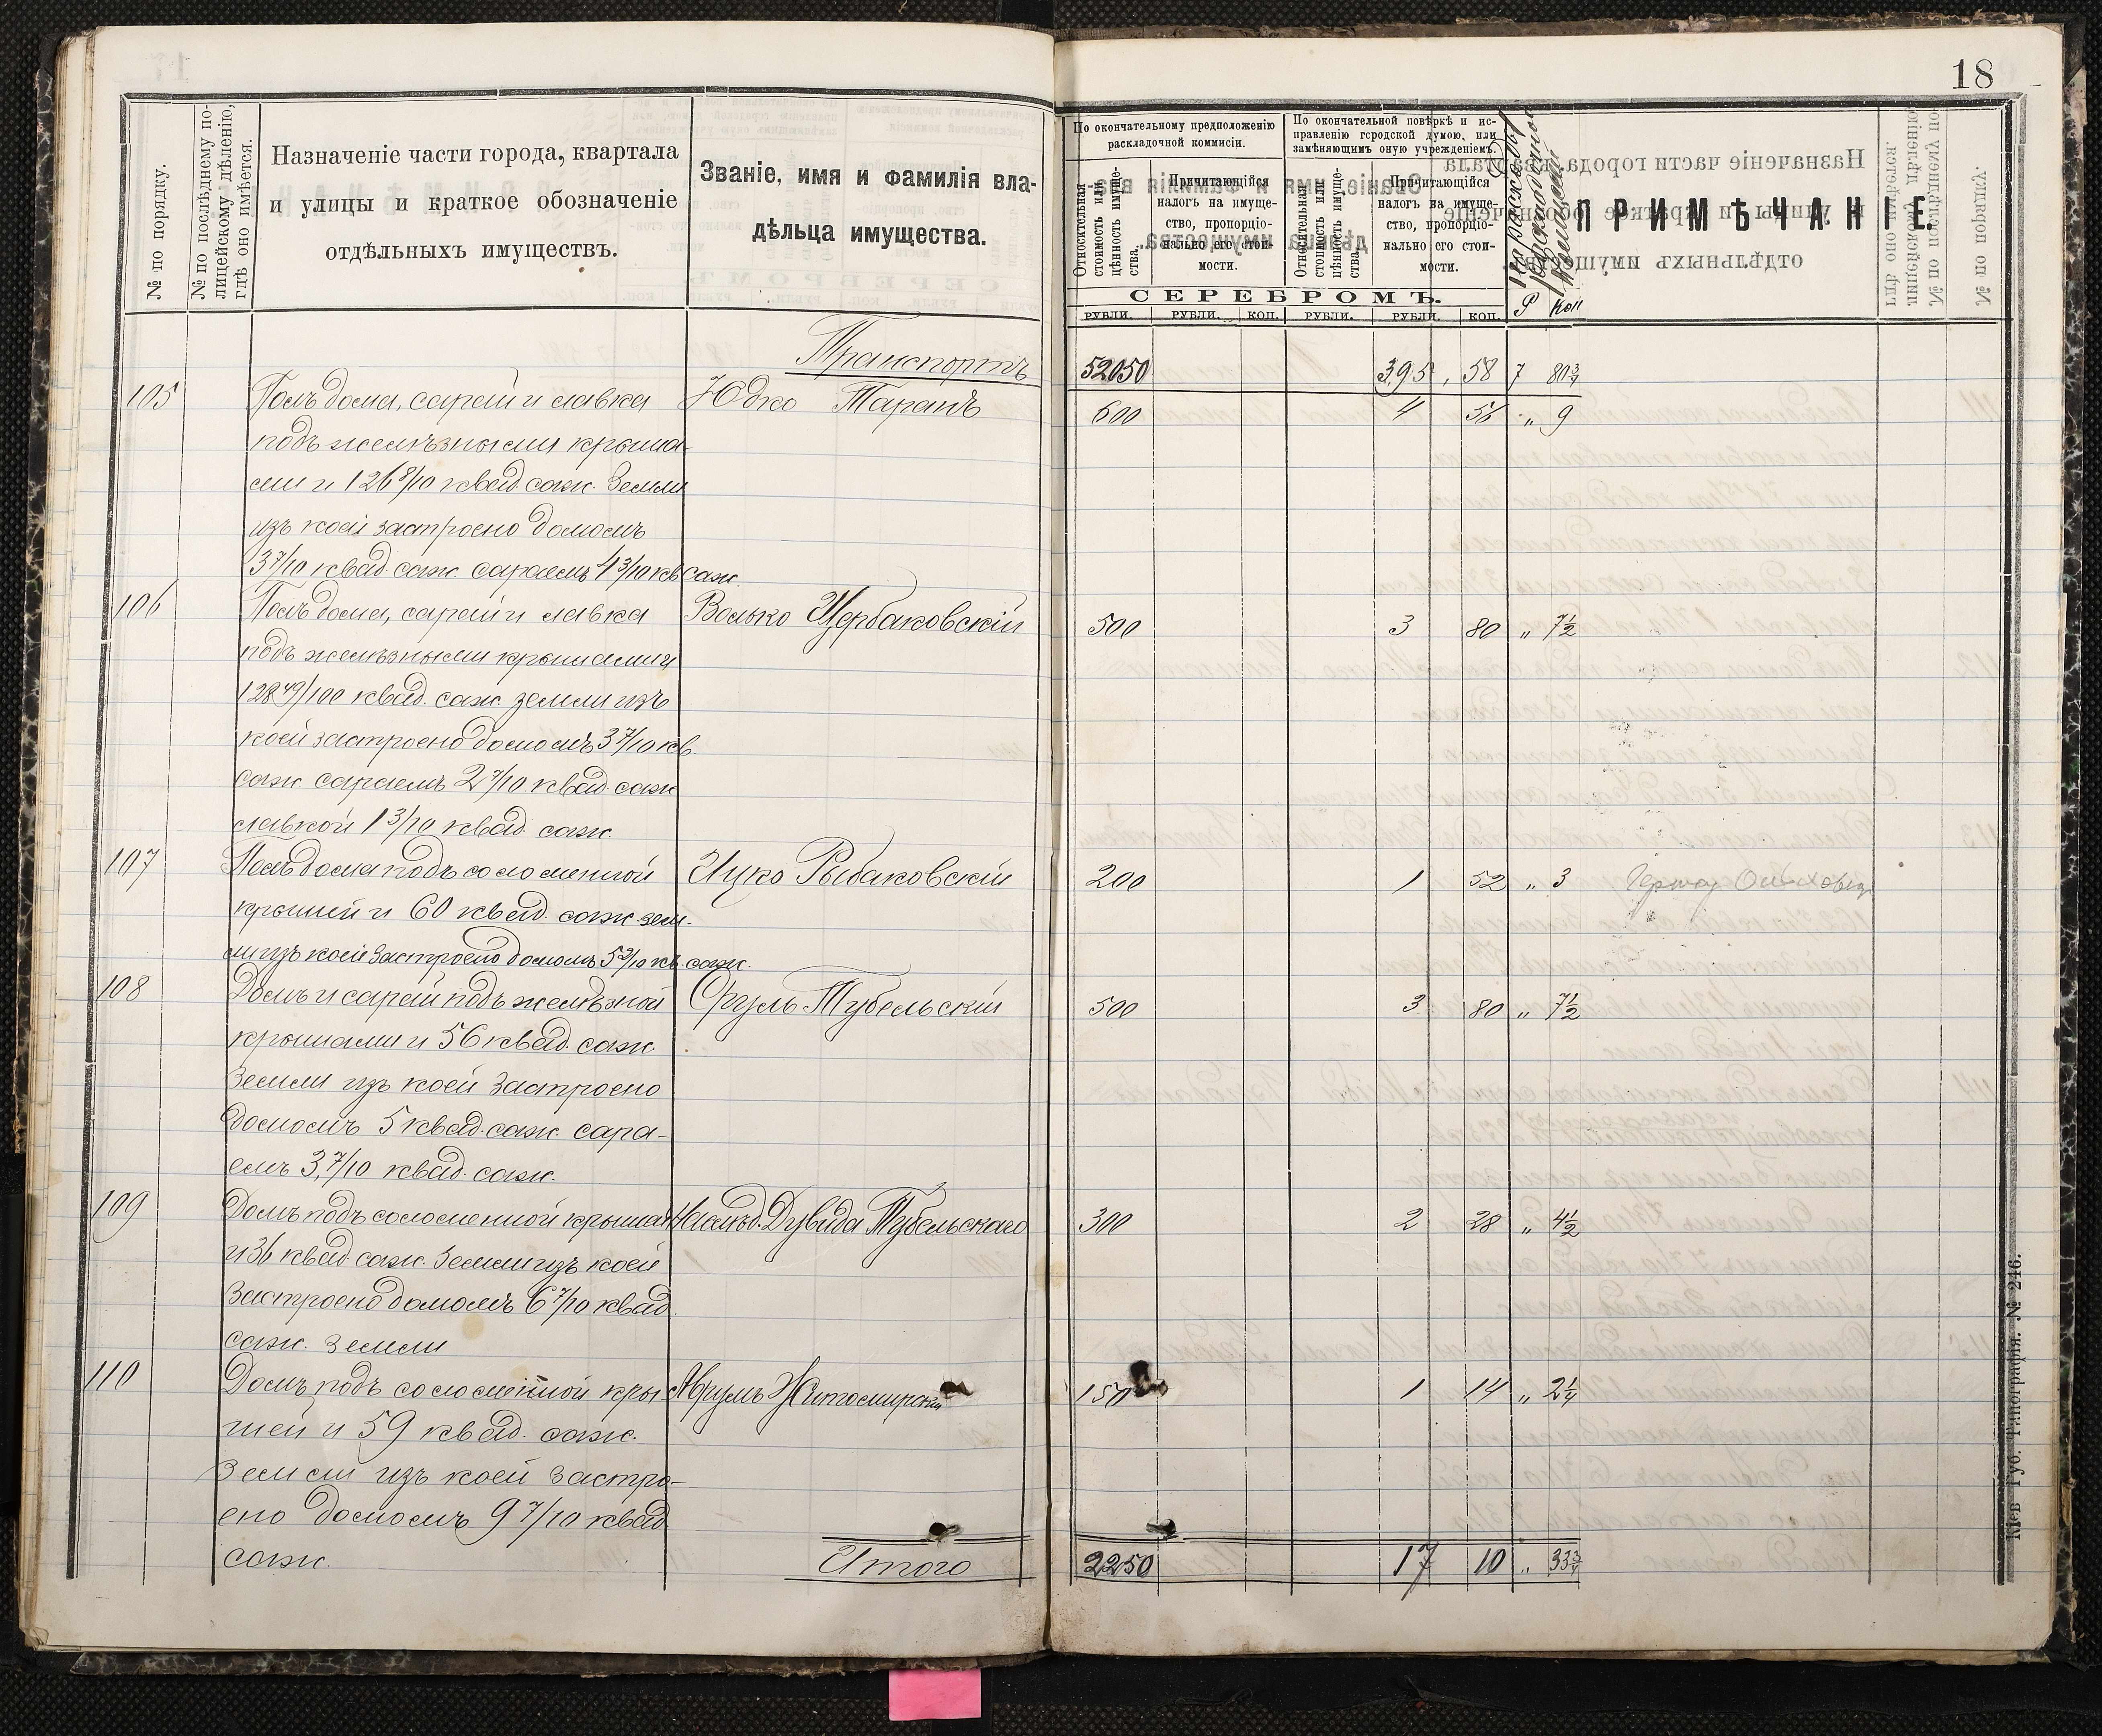 18
№ по порядку.
№ по послѣднему по-
лицейскому дѣленію,
гдѣ оно имѣется.
Назначеніе части города, квартала
и улицы и краткое обозначеніе
отдѣльныхъ имуществъ.
Званіе, имя и фамилія вла-
дѣльца имущества.
По окончательному предположенію
раскладочной коммисіи.
Относительная
стоимость или
цѣнность имуще-
ства.
Причитающійся
налогъ на имуще-
ство, пропорціо-
нально его стои-
мости.
По окончательной повѣркѣ и ис-
правленію городской думою, или
замѣняющимъ оную учрежденіемъ.
Относительная
стоимость или
цѣнность имуще-
ства.
Причитающійся
налогъ на имуще-
ство, пропорціо-
нально его стои-
мости.
СЕРЕБРОМЪ.
РУБЛИ. РУБЛИ. КОП. РУБЛИ. РУБЛИ. КОП.
Р Коп
ПРИМѢЧАНІЕ
Транспортъ 52050 395, 58 7 80 3/4
105 Полъ дома, сарай и лавка Юдко Таранъ 600 4 56 „ 9
подъ желѣзными крыша-
ми и 126 8/10 квад. саж. Земли
изъ коей застроено домомъ
3 7/10 квад. саж. сараемъ 4 3/10 кв саж.
106 Полъ дома, сарай и лавка Волько Щербаковскій 500 3 80 „ 7 1/2
подъ желѣзными крышами и
128 49/100 квад. саж. земли изъ
коей застроено домомъ 3 7/10 кв.
саж. сараемъ 2 7/10 квад. саж
лавкой 1 3/10 квад. саж.
107 Полъ дома подъ соломенной Ицко Рыбаковскій 200 1 52 „ 3
крышей и 60 квад. саж. зем-
ли изъ коей застроено домомъ 5 9/10 кв. саж.
108 Домъ и сарай подъ желѣзной Сруль Тубельскій 500 3 80 „ 7 1/2
крышами и 56 квад. саж.
Земли изъ коей застроено
домомъ 5 квад. саж. сара-
емъ 3,7/10 квад. саж.
109 Домъ подъ соломенной крышей Наслѣд. Дувида Тубельскаго 300 2 28 „ 4 1/2
и 36 квад. саж. Земли изъ коей
Застроено домомъ 6 7/10 квад.
саж. земли
110 Домъ подъ соломенной кры Аврумъ Житомирскій 150 1 14 „ 2 1/4
шей и 59 квад. саж.
Земли изъ коей застро-
ено домомъ 9 7/10 квад
саж.
Итого 2250 17 10 „ 33 3/4
Кіев Губ. Типографія. № 246.